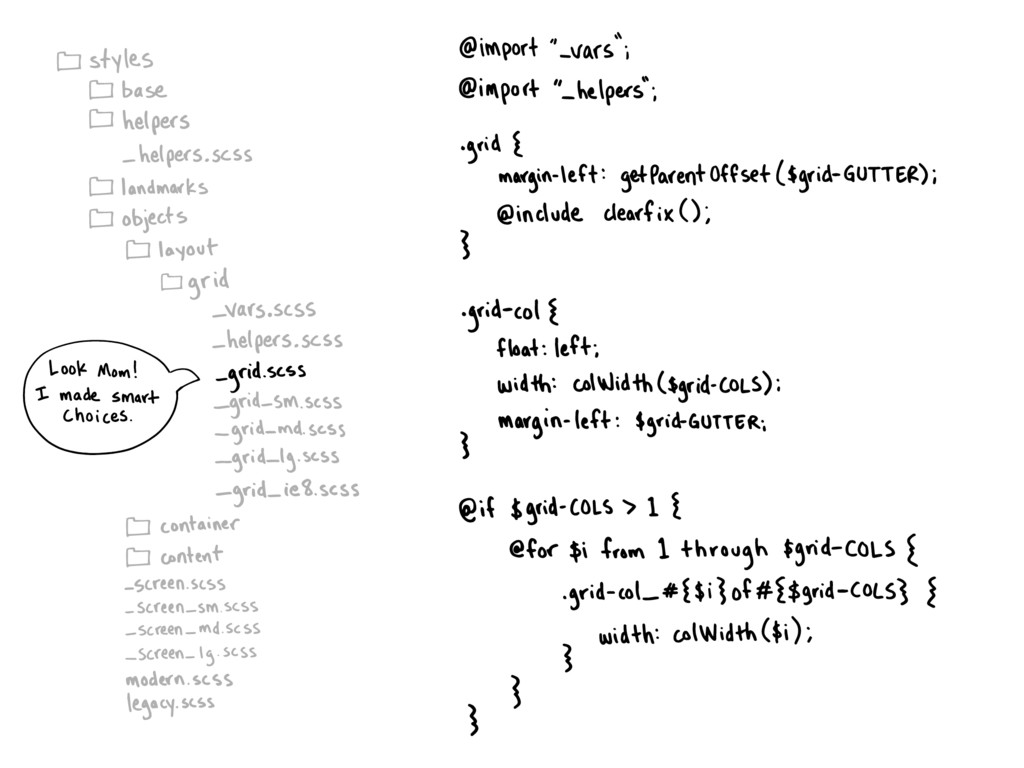 styles
base
helpers
_helpers.scss
landmarks
objects
layout
grid
_vars.scss
_helpers.scss
Look Mom!
I made smart
choices.
_grid.scss
_grid_sm.scss
_grid_md.scss
_grid_lg.scss
_grid_ie8.scss
container
content
_screen.scss
_screen_sm.scss
_screen_md.scss
_screen_lg.scss
modern.scss
legacy.scss
@import "_vars";
@import "_helpers";
.grid {
margin-left: getParentOffset($grid-GUTTER);
@include clearfix();
}
.grid-col {
float: left;
width: colWidth($grid-COLS);
margin-left: $grid-GUTTER;
}
@if $grid-COLS > 1 {
@for $i from 1 through $grid-COLS {
.grid-col_#{$i}of#{$grid-COLS} {
width: colWidth($i);
}
}
}